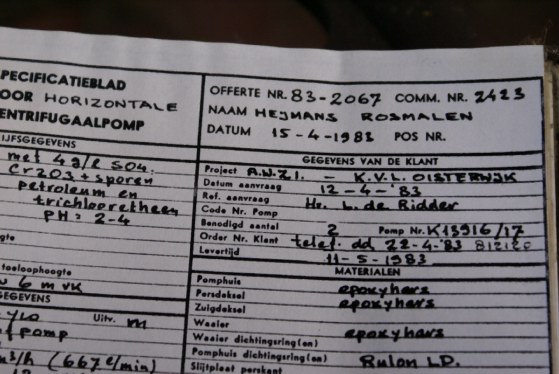 PECIFICATIEBLAD
OOR HORIZONTALE
ENTRIFUGAALPOMP
OFFERTE NR. 83-2067 COMM. NR. 2423
NAAM HEIJMANS ROSMALEN
DATUM 15-4-1983 POS NR.
IJFSGEGEVENS
met 4 g/l SO4.
Cr2O3 + sporen
petroleum en
trichlooretheen
PH = 2-4
toeloophoogte
6 m vk
GEGEVENS
Uitv. m
pomp
m³/h (667 l/min)
GEGEVENS VAN DE KLANT
Project A.W.Z.I. - K.V.L. OISTERWIJK
Datum aanvraag 12-4-'83
Ref. aanvraag Hr. L. de Ridder
Code Nr. Pomp
Benodigd aantal 2 Pomp Nr. K13916/17
Order Nr. Klant telef. dd 22-4-'83 812120
Levertijd 11-5-1983
MATERIALEN
Pomphuis epoxyhars
Persdeksel epoxyhars
Zuigdeksel
Waaier epoxyhars
Waaier dichtingsring(en)
Pomphuis dichtingsring(en) Rulon LD.
Slijtplaat perskant